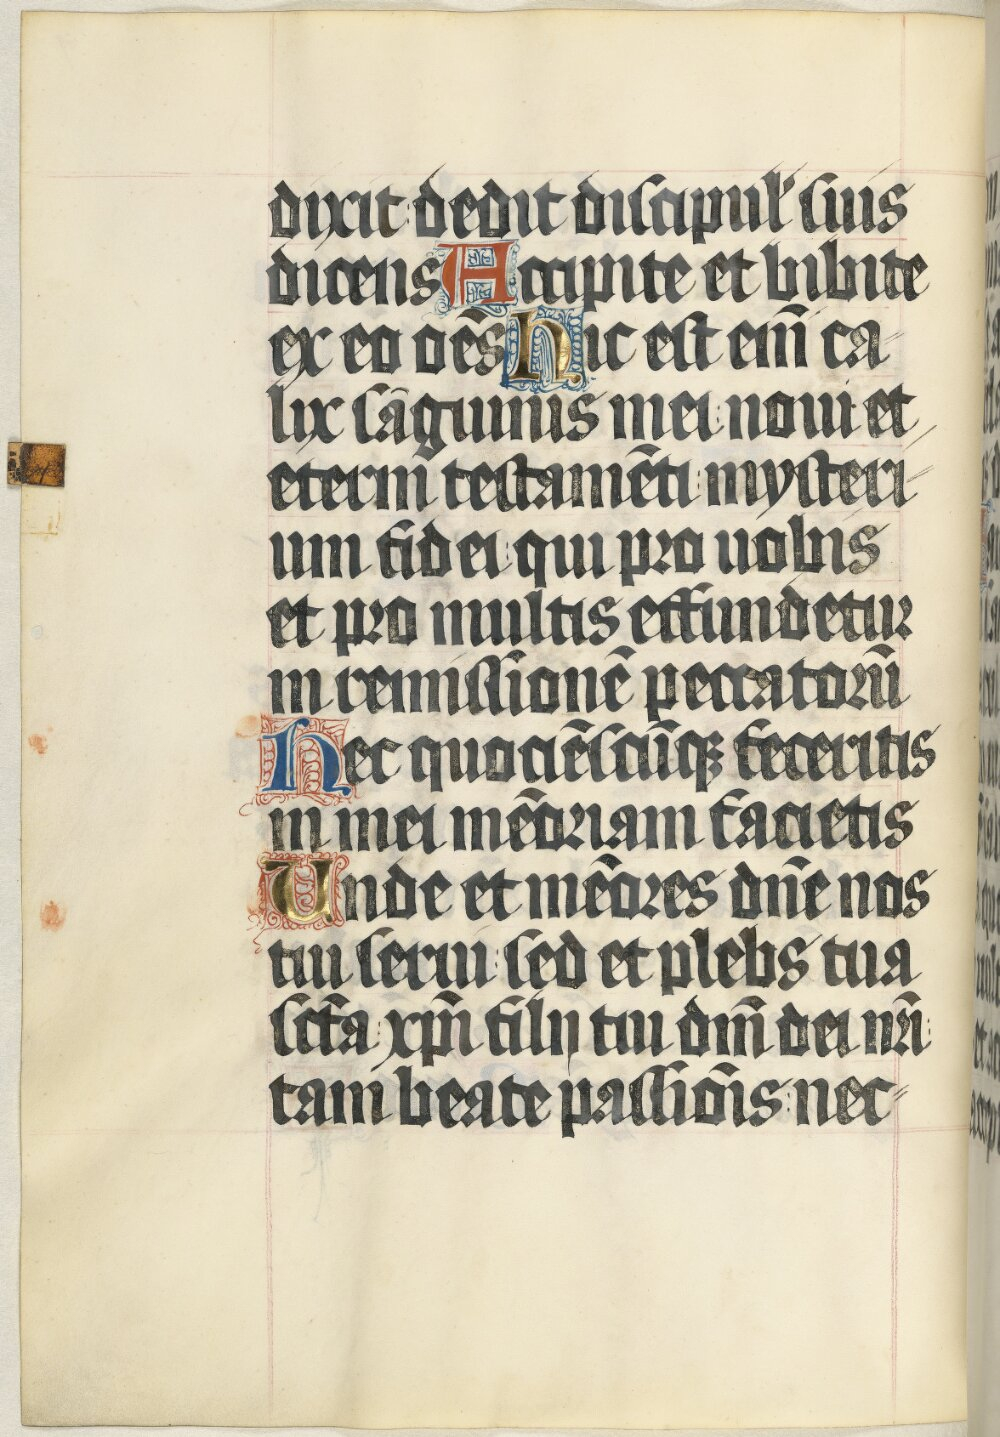 dixit dedit discipul' suis
dicens Accipite et bibite
ex eo oēs hic est em̄ ca-
lix sāguinis mei noui et
eterni testamēti mysteri-
um fidei qui pro uobis
et pro multis effundetur
in remissionē peccatorū
hec quociēscūqꝫ feceritis
in mei mēoriam facietis
Unde et mēores dn̄e nos
tui serui sed et plebs tua
sctā xp̄i filij tui dn̄i dei nr̄i
tam beate passiōis nec-